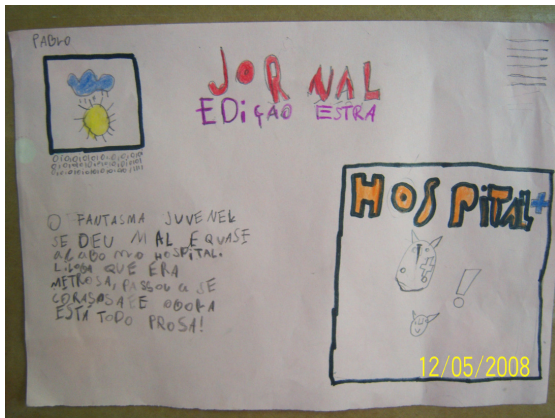 PABLO
JORNAL
EDIÇÃO ESTRA
HOSPITAL+
O FANTASMA JUVENEL
SE DEU MAL E QUASE
ACABO NO HOSPITAL.
QUE ERA
METROSA, PASSOU A SE
ESTÁ TODO PROSA!
12/05/2008